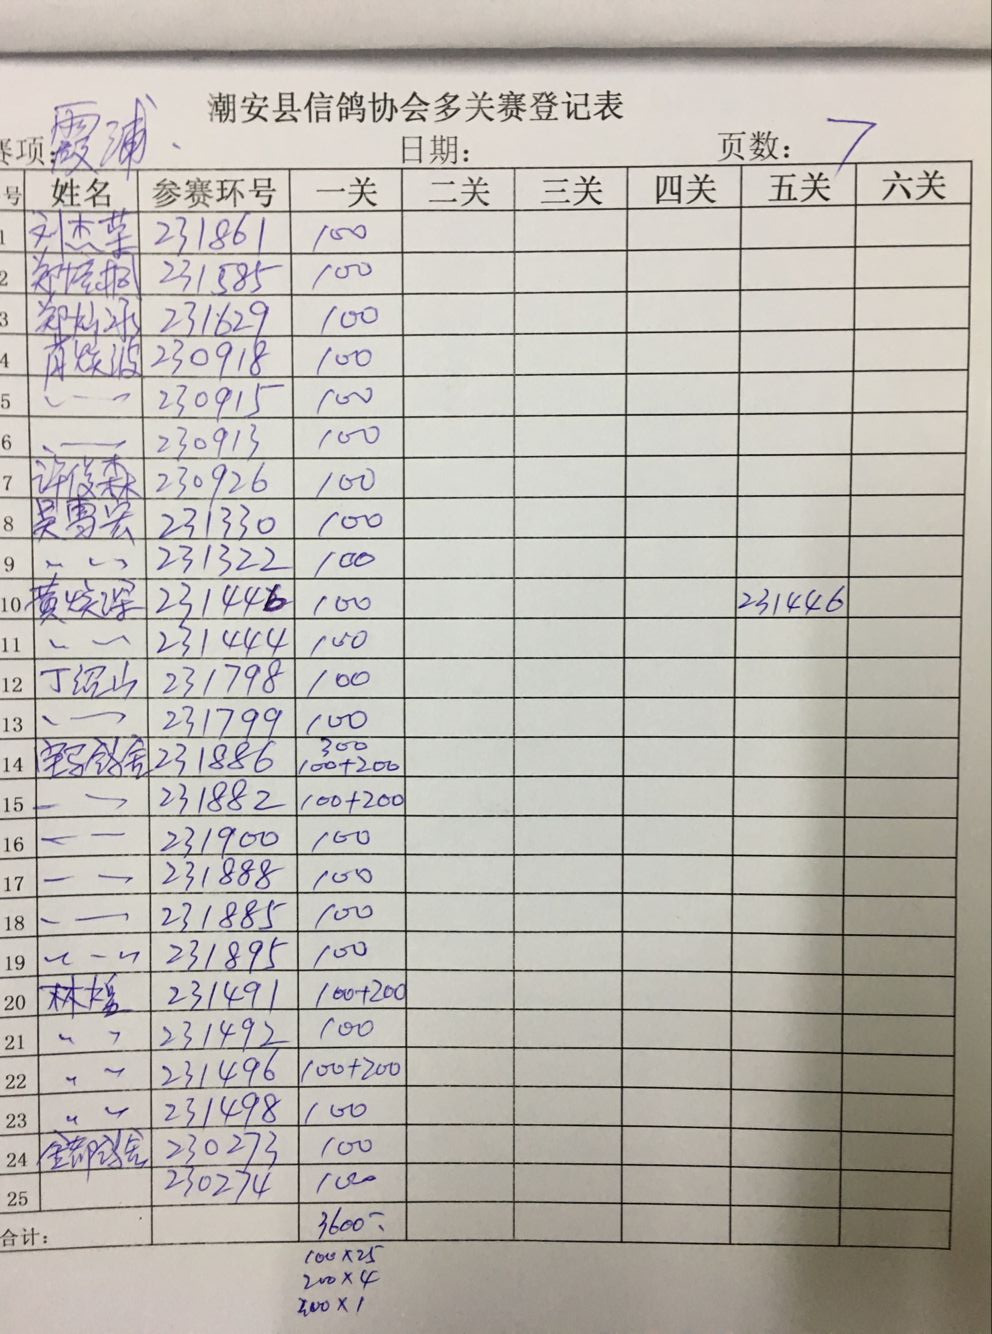 潮安县信鸽协会多关赛登记表
赛项: 霞浦. 日期: 页数: 7
号 姓名 参赛环号 一关 二关 三关 四关 五关 六关
1 刘杰荣 231861 100
2 231585 100
3 231629 100
4 肖焕波 230918 100
5 230915 100
6 230913 100
7 许俊森 230926 100
8 231330 100
9 〃 231322 100
10 231446 100 231446
11 〃 231444 100
12 丁绍山 231798 100
13 231799 100
14 231886 300 100+200
15 231882 100+200
16 231900 100
17 231888 100
18 231885 100
19 231895 100
20 231491 100+200
21 〃 231492 100
22 〃 231496 100+200
23 〃 231498 100
24 230273 100
25 230274 100
合计: 3600
100×25
200×4
300×1